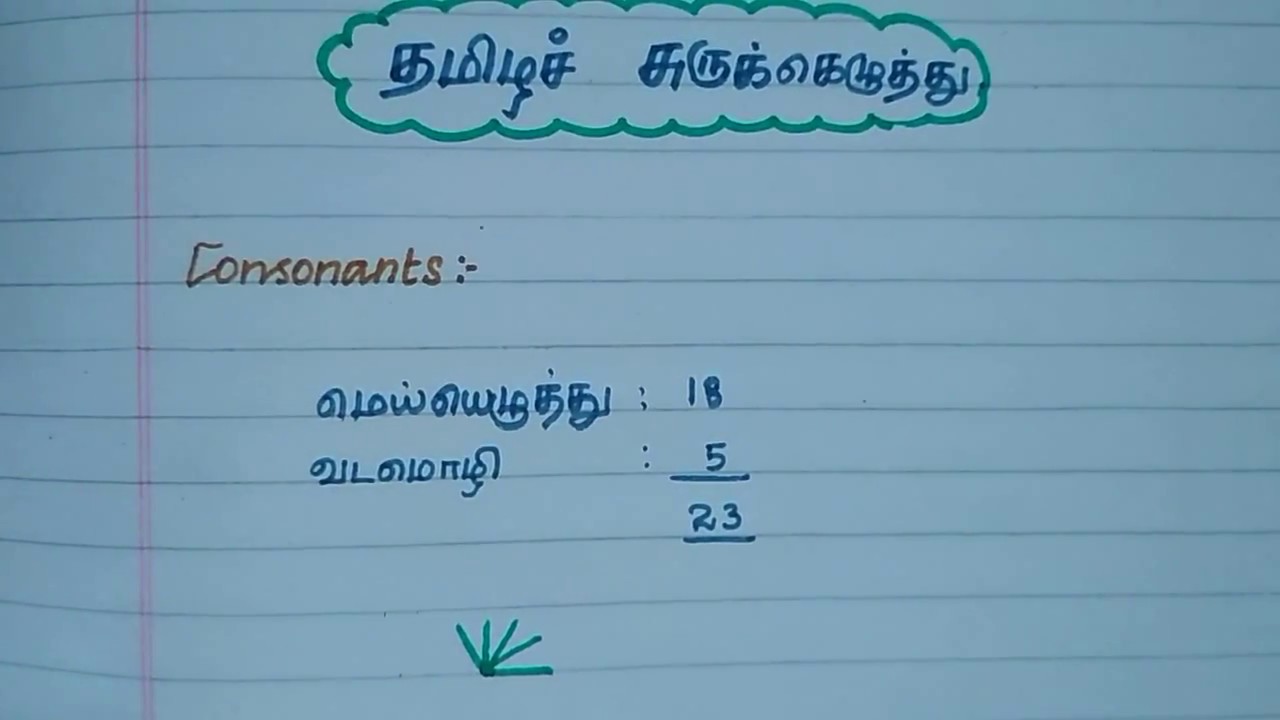 தமிழச் சுருக்கெழுத்து
Consonants :-
மெய்யெழுத்து : 18
வடமொழி : 5
23